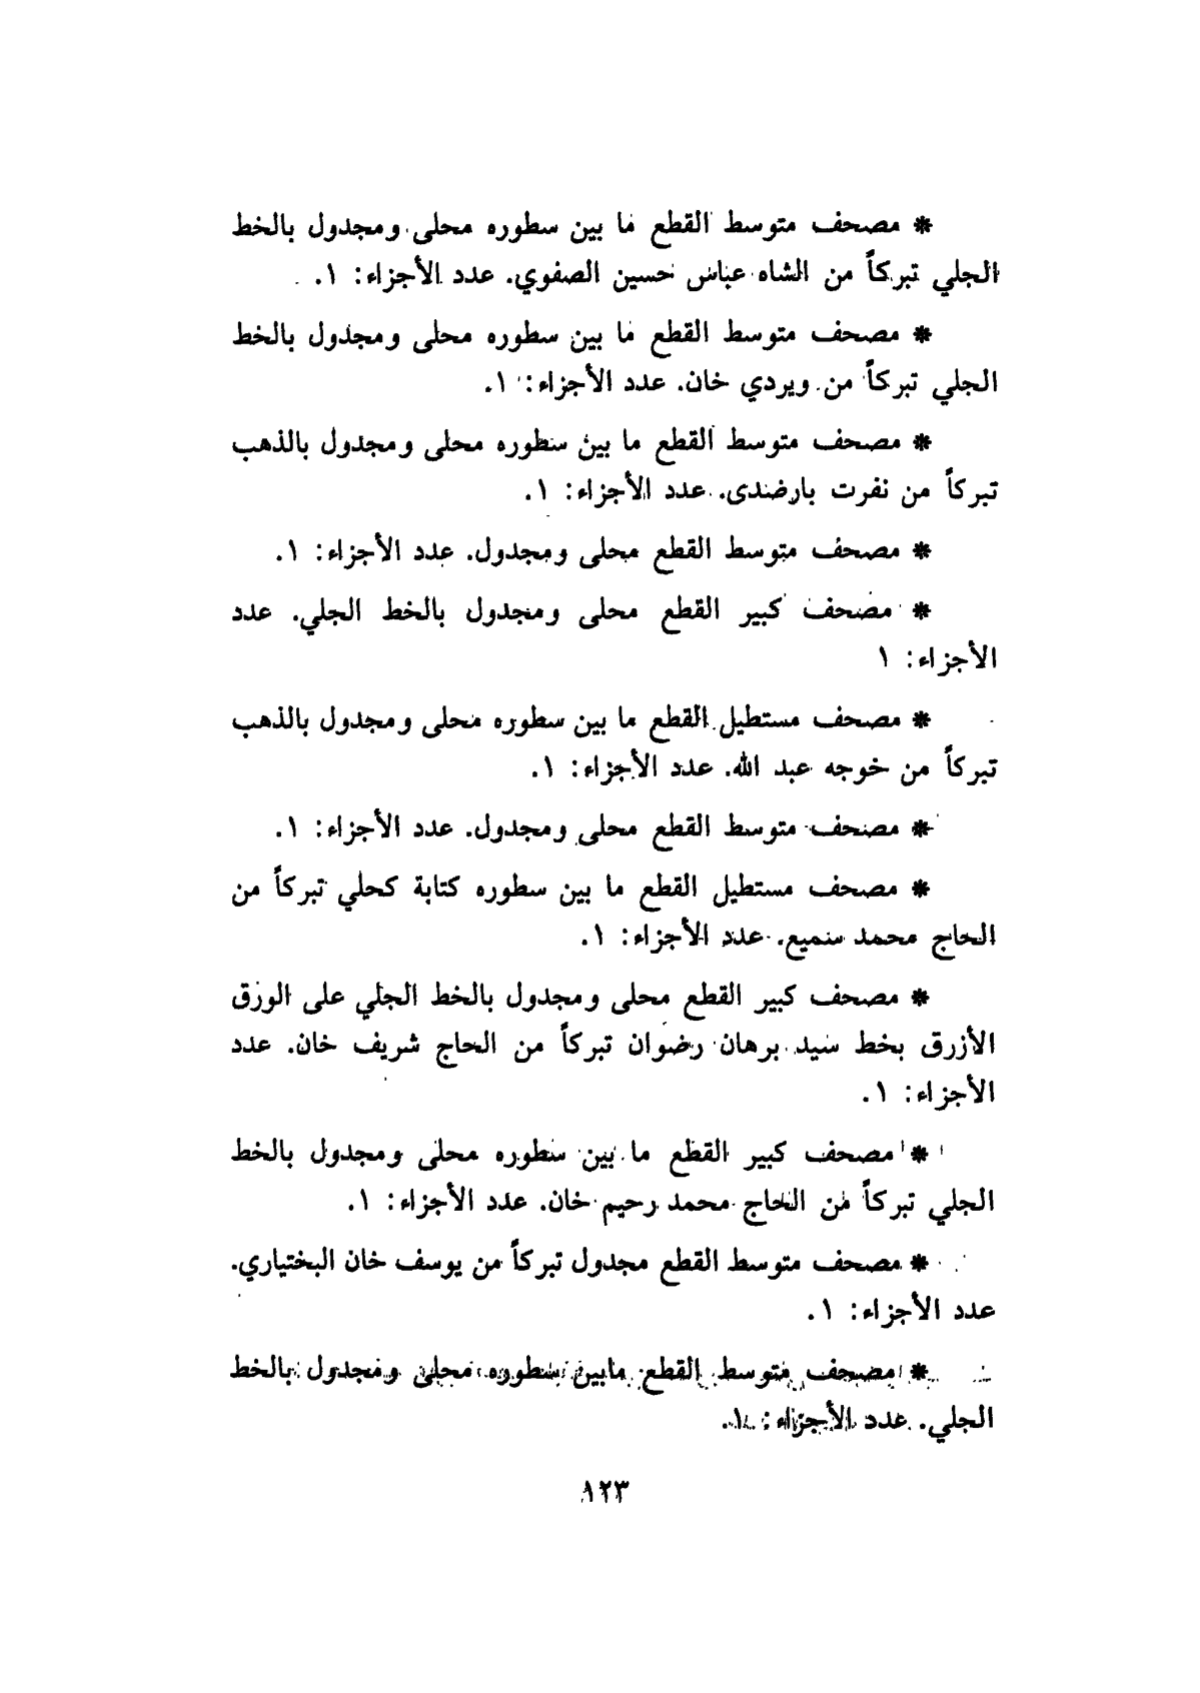 * مصحف متوسط القطع ما بين سطوره محلى ومجدول بالخط
الجلي تبركاً من الشاه عباس حسين الصفوي. عدد الأجزاء: ١.
* مصحف متوسط القطع ما بين سطوره محلى ومجدول بالخط
الجلي تبركاً من ويردي خان. عدد الأجزاء: ١.
* مصحف متوسط القطع ما بين سطوره محلى ومجدول بالذهب
تبركاً من نفرت بارضندى. عدد الأجزاء: ١.
* مصحف متوسط القطع محلى ومجدول. عدد الأجزاء: ١.
* مصحف كبير القطع محلى ومجدول بالخط الجلي. عدد
الأجزاء: ١
* مصحف مستطيل القطع ما بين سطوره محلى ومجدول بالذهب
تبركاً من خوجه عبد الله. عدد الأجزاء: ١.
* مصحف متوسط القطع محلى ومجدول. عدد الأجزاء: ١.
* مصحف مستطيل القطع ما بين سطوره كتابة كحلي تبركاً من
الحاج محمد سميع. عدد الأجزاء: ١.
* مصحف كبير القطع محلى ومجدول بالخط الجلي على الورق
الأزرق بخط سيد برهان رضوان تبركاً من الحاج شريف خان. عدد
الأجزاء: ١.
* مصحف كبير القطع ما بين سطوره محلى ومجدول بالخط
الجلي تبركاً من الحاج محمد رحيم خان. عدد الأجزاء: ١.
* مصحف متوسط القطع مجدول تبركاً من يوسف خان البختياري.
عدد الأجزاء: ١.
* مصحف متوسط القطع مابين سطوره محلى ومجدول بالخط
الجلي. عدد الأجزاء: ١.
١٢٣